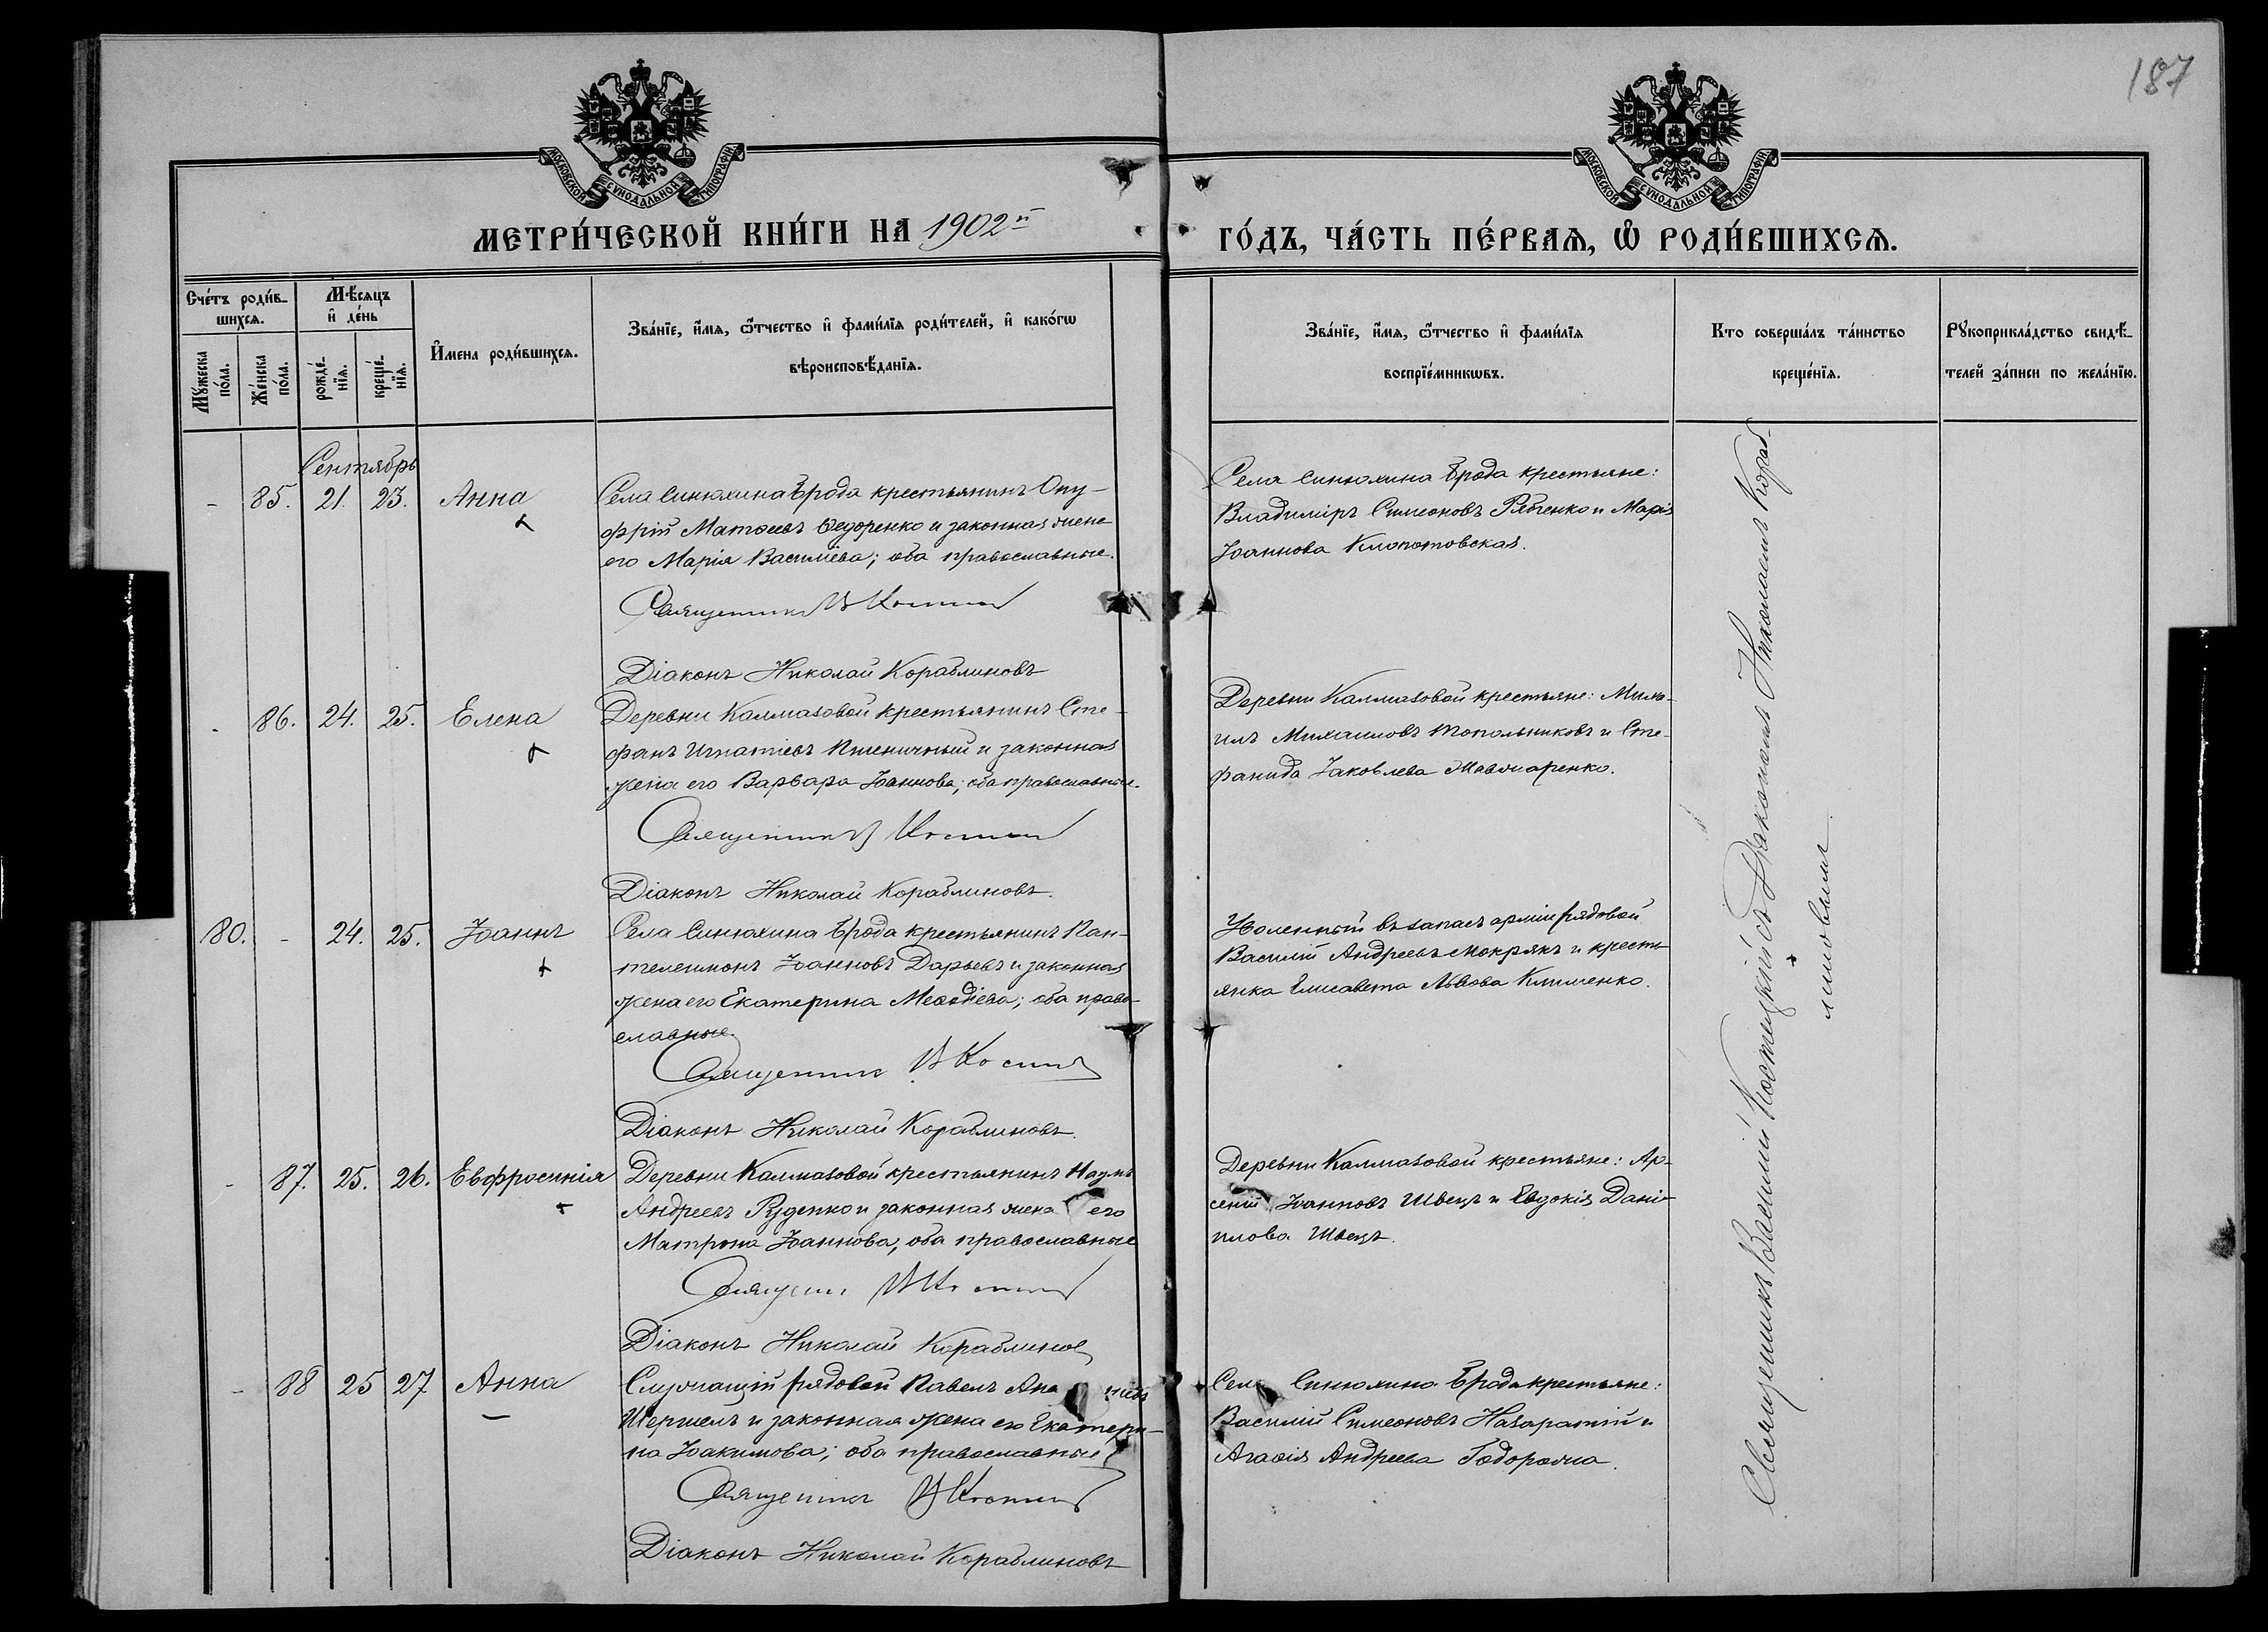 187
МОСКОВСКОЙ СѴНОДАЛЬНОЙ ТИПОГРАФІИ
МОСКОВСКОЙ СѴНОДАЛЬНОЙ ТИПОГРАФІИ
МЕТРИ́ЧЕСКОЙ КНИ́ГИ НА 1902й
ГО́ДЪ, ЧА́СТЬ ПЕ́РВАЯ, Ѽ РОДИ́ВШИХСЯ.
Сче́тъ роди́в-
шихся.
Мꙋ́жеска по́ла.
Же́нска по́ла.
Мѣ́сяцъ
и҆ де́нь
рожде́-
нїя.
креще́-
нїя.
И҆мена роди́вшихся.
Зва́нїе, и҆́мя, ѻ҆́тчество и҆ фами́лїя роди́телей, и҆ како́гѡ
вѣроисповѣ́данїя.
Зва́нїе, и҆́мя, ѻ҆́тчество и҆ фами́лїя
воспрїе́мникѡвъ.
Кто соверша́лъ та́инство
креще́нїя.
Рꙋкоприкла́дство свидѣ́-
телей за́писи по жела́нїю.
Сентябрь
- 85. 21. 23. Анна
Села Синюхина Брода крестьянинъ Ону-
фрій Матѳеевъ Ѳедоренко и законная жена
его Марія Василіева; оба православные.
Священникъ В Костец
Діаконъ Николай Кораблиновъ
Села Синюхина Брода крестьяне:
Владиміръ Симеоновъ Рябченко и Марія
Іоаннова Клопотовская.
- 86. 24. 25. Елена
Деревни Калмазовой крестьянинъ Сте-
фанъ Игнатіевъ Пшеничный и законная
жена его Варвара Іоаннова; оба православные.
Священникъ В Костец
Діаконъ Николай Кораблиновъ.
Деревни Калмазовой крестьяне: Миха-
илъ Михаиловъ Топольниковъ и Сте-
фанида Іаковлева
80. - 24. 25. Іоаннъ
Села Синюхина Брода крестьянинъ Пан-
телеимонъ Іоанновъ Дарьевъ и законная
жена его Екатерина Меѳодіева; оба право-
славные.
Священникъ В Костец
Діаконъ Николай Кораблиновъ.
Уволенный въ запасъ арміи рядовой
Василій Андреевъ Мокрякъ и кресть-
янка Елисавета Львова Клименко.
- 87. 25. 26. Евфросинія
Деревни Калмазовой крестьянинъ Наумъ
Андреевъ Руденко и законная жена его
Матрона Іоаннова; оба православные
Священникъ В Костец
Діаконъ Николай Кораблинов
Деревни Калмазовой крестьяне: Ар-
сеній Іоанновъ Швецъ и Евдокія Дані-
илова Швецъ.
- 88 25 27 Анна
Служащій рядовой Павелъ
и законная жена его Екатери-
на Іоакимова; оба православные
Священникъ В Костец
Діаконъ Николай Кораблиновъ
Села Синюхина Брода крестьяне:
Василій Симеоновъ Назаратій и
Агаѳія Андреева
Священникъ Василій Костецкій съ Діакономъ Николаемъ Кораб-
линовымъ